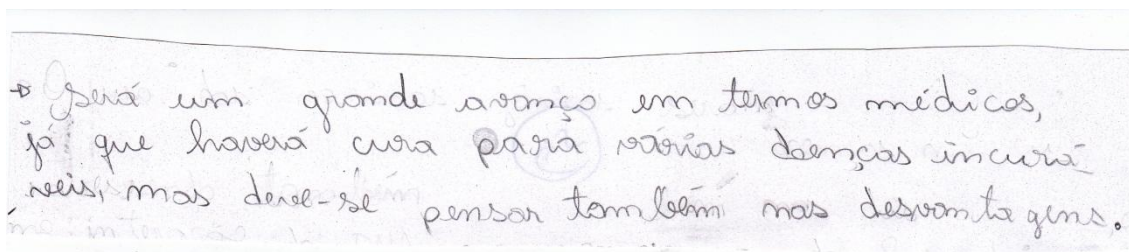 → Será um grande avanço em termos médicos,
já que haverá cura para várias doenças incurá-
veis, mas deve-se pensar também nas desvantagens.